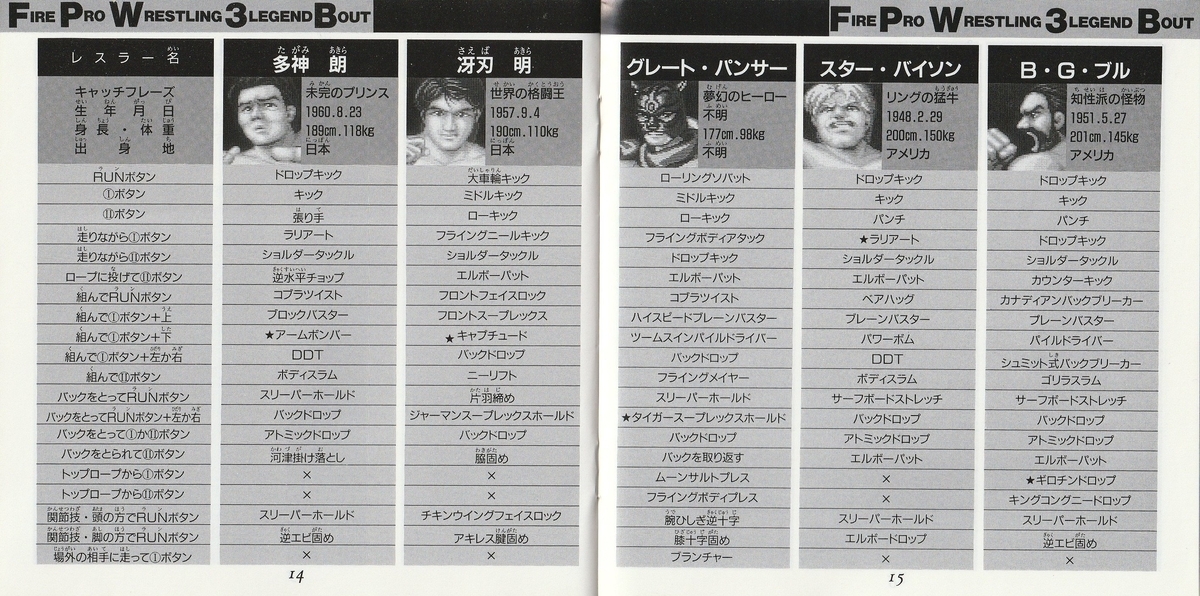 FIRE PRO WRESTLING 3 LEGEND BOUT
レスラー名
キャッチフレーズ
生年月日
身長・体重
出身地
RUNボタン
①ボタン
⑪ボタン
走りながら①ボタン
走りながら⑪ボタン
ロープに投げて⑪ボタン
組んでRUNボタン
組んで①ボタン+上
組んで①ボタン+下
組んで①ボタン+左か右
組んで⑪ボタン
バックをとってRUNボタン
バックをとってRUNボタン+左か右
バックをとって①か⑪ボタン
バックをとられて⑪ボタン
トップロープから①ボタン
トップロープから⑪ボタン
関節技・頭の方でRUNボタン
関節技・脚の方でRUNボタン
場外の相手に走って①ボタン
多神 朗
未完のプリンス
1960.8.23
189cm.118kg
日本
ドロップキック
キック
張り手
ラリアート
ショルダータックル
逆水平チョップ
コブラツイスト
ブロックバスター
★アームボンバー
DDT
ボディスラム
スリーパーホールド
バックドロップ
アトミックドロップ
河津掛け落とし
×
×
スリーパーホールド
逆エビ固め
×
冴刃 明
世界の格闘王
1957.9.4
190cm.110kg
日本
大車輪キック
ミドルキック
ローキック
フライングニールキック
ショルダータックル
エルボーバット
フロントフェイスロック
フロントスープレックス
★キャプチュード
バックドロップ
ニーリフト
片羽締め
ジャーマンスープレックスホールド
バックドロップ
脇固め
×
×
チキンウイングフェイスロック
アキレス腱固め
×
14
FIRE PRO WRESTLING 3 LEGEND BOUT
グレート・パンサー
夢幻のヒーロー
不明
177cm.98kg
不明
ローリングソバット
ミドルキック
ローキック
フライングボディアタック
ドロップキック
エルボーバット
コブラツイスト
ハイスピードブレーンバスター
ツームスインパイルドライバー
バックドロップ
フライングメイヤー
スリーパーホールド
★タイガースープレックスホールド
バックドロップ
バックを取り返す
ムーンサルトプレス
フライングボディプレス
腕ひしぎ逆十字
膝十字固め
プランチャー
スター・バイソン
リングの猛牛
1948.2.29
200cm.150kg
アメリカ
ドロップキック
キック
パンチ
★ラリアート
ショルダータックル
エルボーバット
ベアハッグ
ブレーンバスター
パワーボム
DDT
ボディスラム
サーフボードストレッチ
バックドロップ
アトミックドロップ
エルボーバット
×
×
スリーパーホールド
エルボードロップ
×
B・G・ブル
知性派の怪物
1951.5.27
201cm.145kg
アメリカ
ドロップキック
キック
パンチ
ドロップキック
ショルダータックル
カウンターキック
カナディアンバックブリーカー
ブレーンバスター
パイルドライバー
シュミット式バックブリーカー
ゴリラスラム
サーフボードストレッチ
バックドロップ
アトミックドロップ
エルボーバット
★ギロチンドロップ
キングコングニードロップ
スリーパーホールド
逆エビ固め
×
15